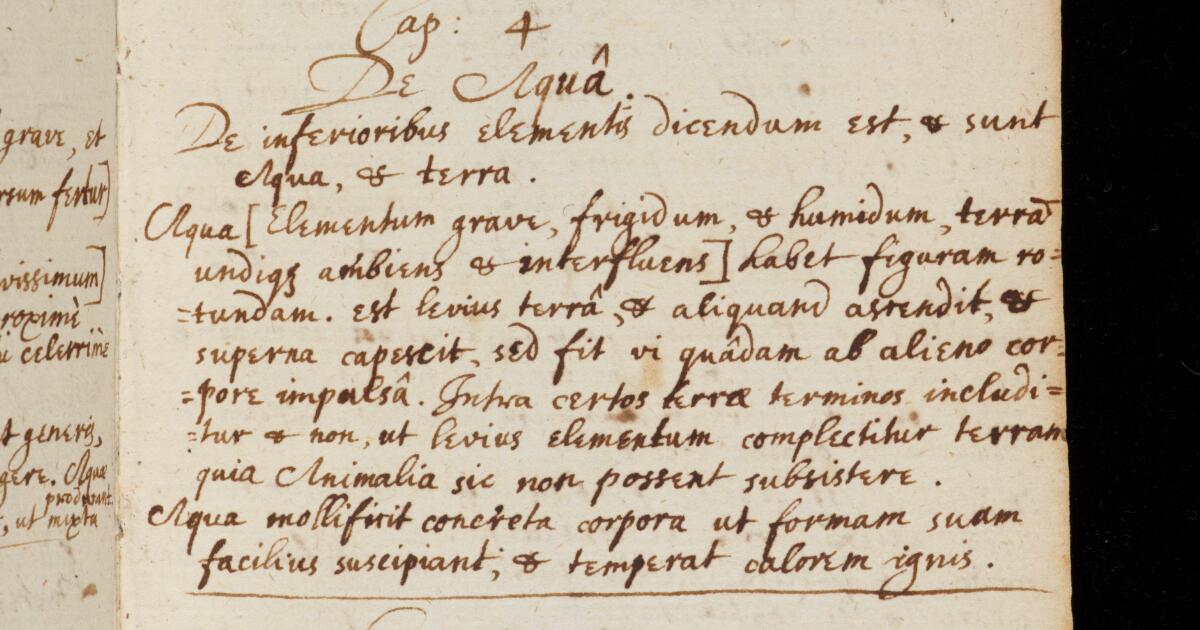 Cap: 4
De Aquâ.
De inferioribus elementis dicendum est, & sunt
Aqua, & terra.
Aqua [Elementum grave, frigidum, & humidum, terrā
undiqȝ ambiens & interfluens] habet figuram ro=
=tundam. est levius terrâ, & aliquand ascendit, &
superna capescit, sed fit vi quâdam ab alieno cor=
=pore impulsâ. Intra certos terræ terminos includi=
=tur & non, ut levius elementum complectitur terram
quia Animalia sic non possent subsistere.
Aqua mollificit concreta corpora ut formam suam
facilius suscipiant; & temperat calorem ignis.
grave, et
rsum fertur]
vissimum]
roximè
celerrimè
t generis,
gere. Aquæ
producunt
, ut mixta